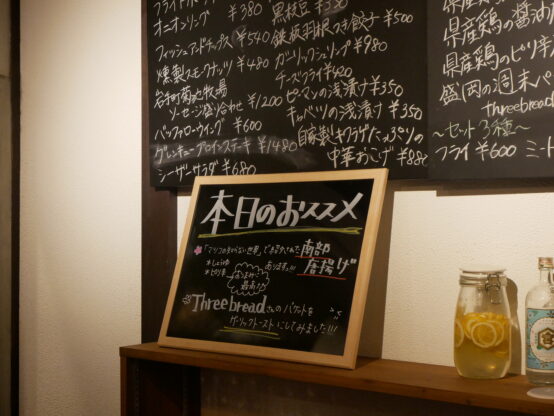 フライドポテト
オニオンリング ¥380
フィッシュアンドチップス ¥540
燻製スモークナッツ ¥480
岩手町菊池牧場
ソーセージ盛り合わせ ¥1200
バッファローウイング ¥600
グレンキューブロインステーキ ¥1480
シーザーサラダ ¥680
黒枝豆 ¥350
鉄板羽根つき餃子 ¥500
ガーリックシュリンプ ¥980
チーズフライ ¥420
ピーマンの浅漬け ¥350
キャベツの浅漬け ¥350
自家製キクラゲたっぷりの
中華おこげ ¥880
県産鶏の醤油
県産鶏のピリ辛
盛岡の週末パ
threebread
〜セット3種〜
フライ ¥600 ミート
本日のおススメ
「マツコの知らない世界」で紹介された南部
唐揚げ
*しょうゆ
*ピリ辛
あります。!!
おつまみ
最高!!
Three breadさんのバケットを
ガーリックトーストにしてみました!!!